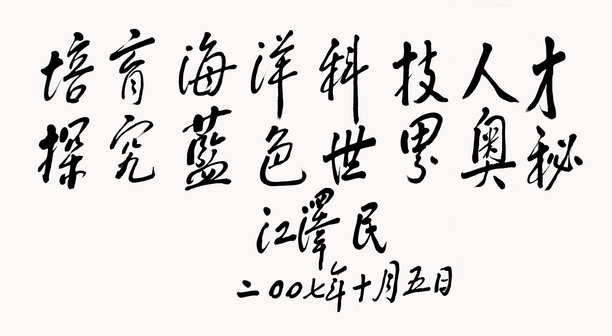 培育海洋科技人才
探究藍色世界奥秘
江澤民
二〇〇七年十月五日